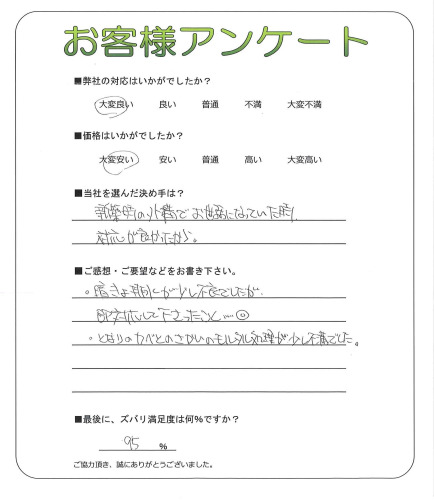 お客様アンケート
■弊社の対応はいかがでしたか？
大変良い 良い 普通 不満 大変不満
■価格はいかがでしたか？
大変安い 安い 普通 高い 大変高い
■当社を選んだ決め手は？
新築時の外構でお世話になっていた時、
対応が良かったから。
■ご感想・ご要望などをお書き下さい。
が少し不良でしたが、
即対応して下さったこと…
・となりのカベとのさかいのモルタル処理が少し不満でした。
■最後に、ズバリ満足度は何％ですか？
95 ％
ご協力頂き、誠にありがとうございました。